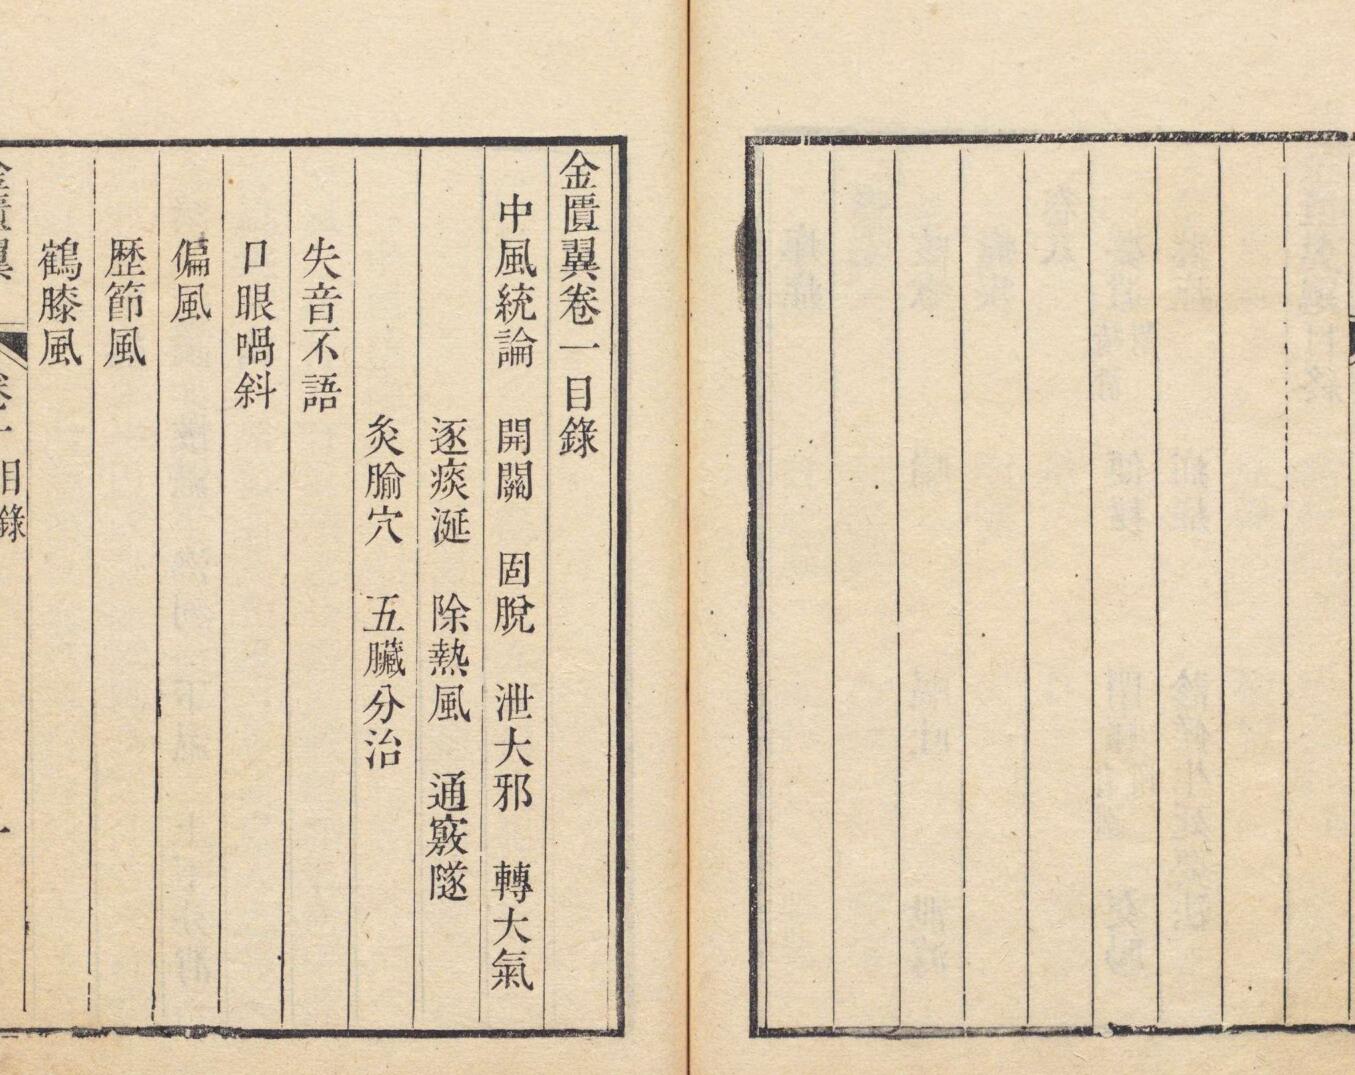 金匱翼卷一目錄
中風統論　開關　固脫　泄大邪　轉大氣
逐痰涎　除熱風　通竅隧
灸腧穴　五臟分治
失音不語
口眼喎斜
偏風
歷節風
鶴膝風
金匱翼　卷一　目錄　一